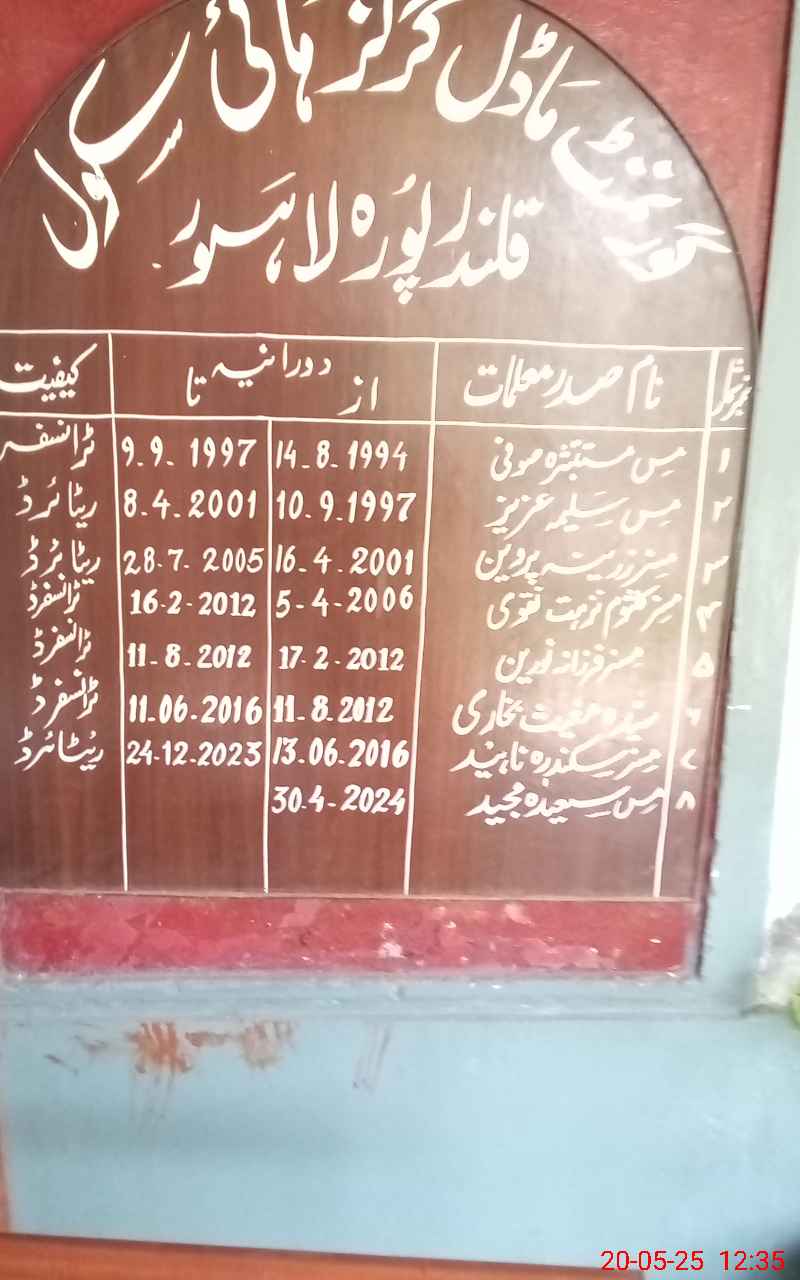 گورنمنٹ ماڈل گرلز ہائی سکول
قلندر پورہ لاہور
نمبر شمار نام صدر معلمات دورانیہ کیفیت
از تا
۱ مس مستبشرہ صوفی 14-8-1994 9-9-1997 ٹرانسفر
۲ مس سلیمہ عزیز 10-9-1997 8-4-2001 ریٹائرڈ
۳ مسز زرینہ پروین 16-4-2001 28-7-2005 ریٹائرڈ
۴ مسز کلثوم نزہت نقوی 5-4-2006 16-2-2012 ٹرانسفرڈ
۵ مسز فرزانہ نورین 17-2-2012 11-8-2012 ٹرانسفرڈ
۶ سیدہ بخاری 11-8-2012 11-06-2016 ٹرانسفرڈ
۷ مسز سکندرہ ناہید 13-06-2016 24-12-2023 ریٹائرڈ
۸ مس سعیدہ مجید 30-4-2024
20-05-25 12:35